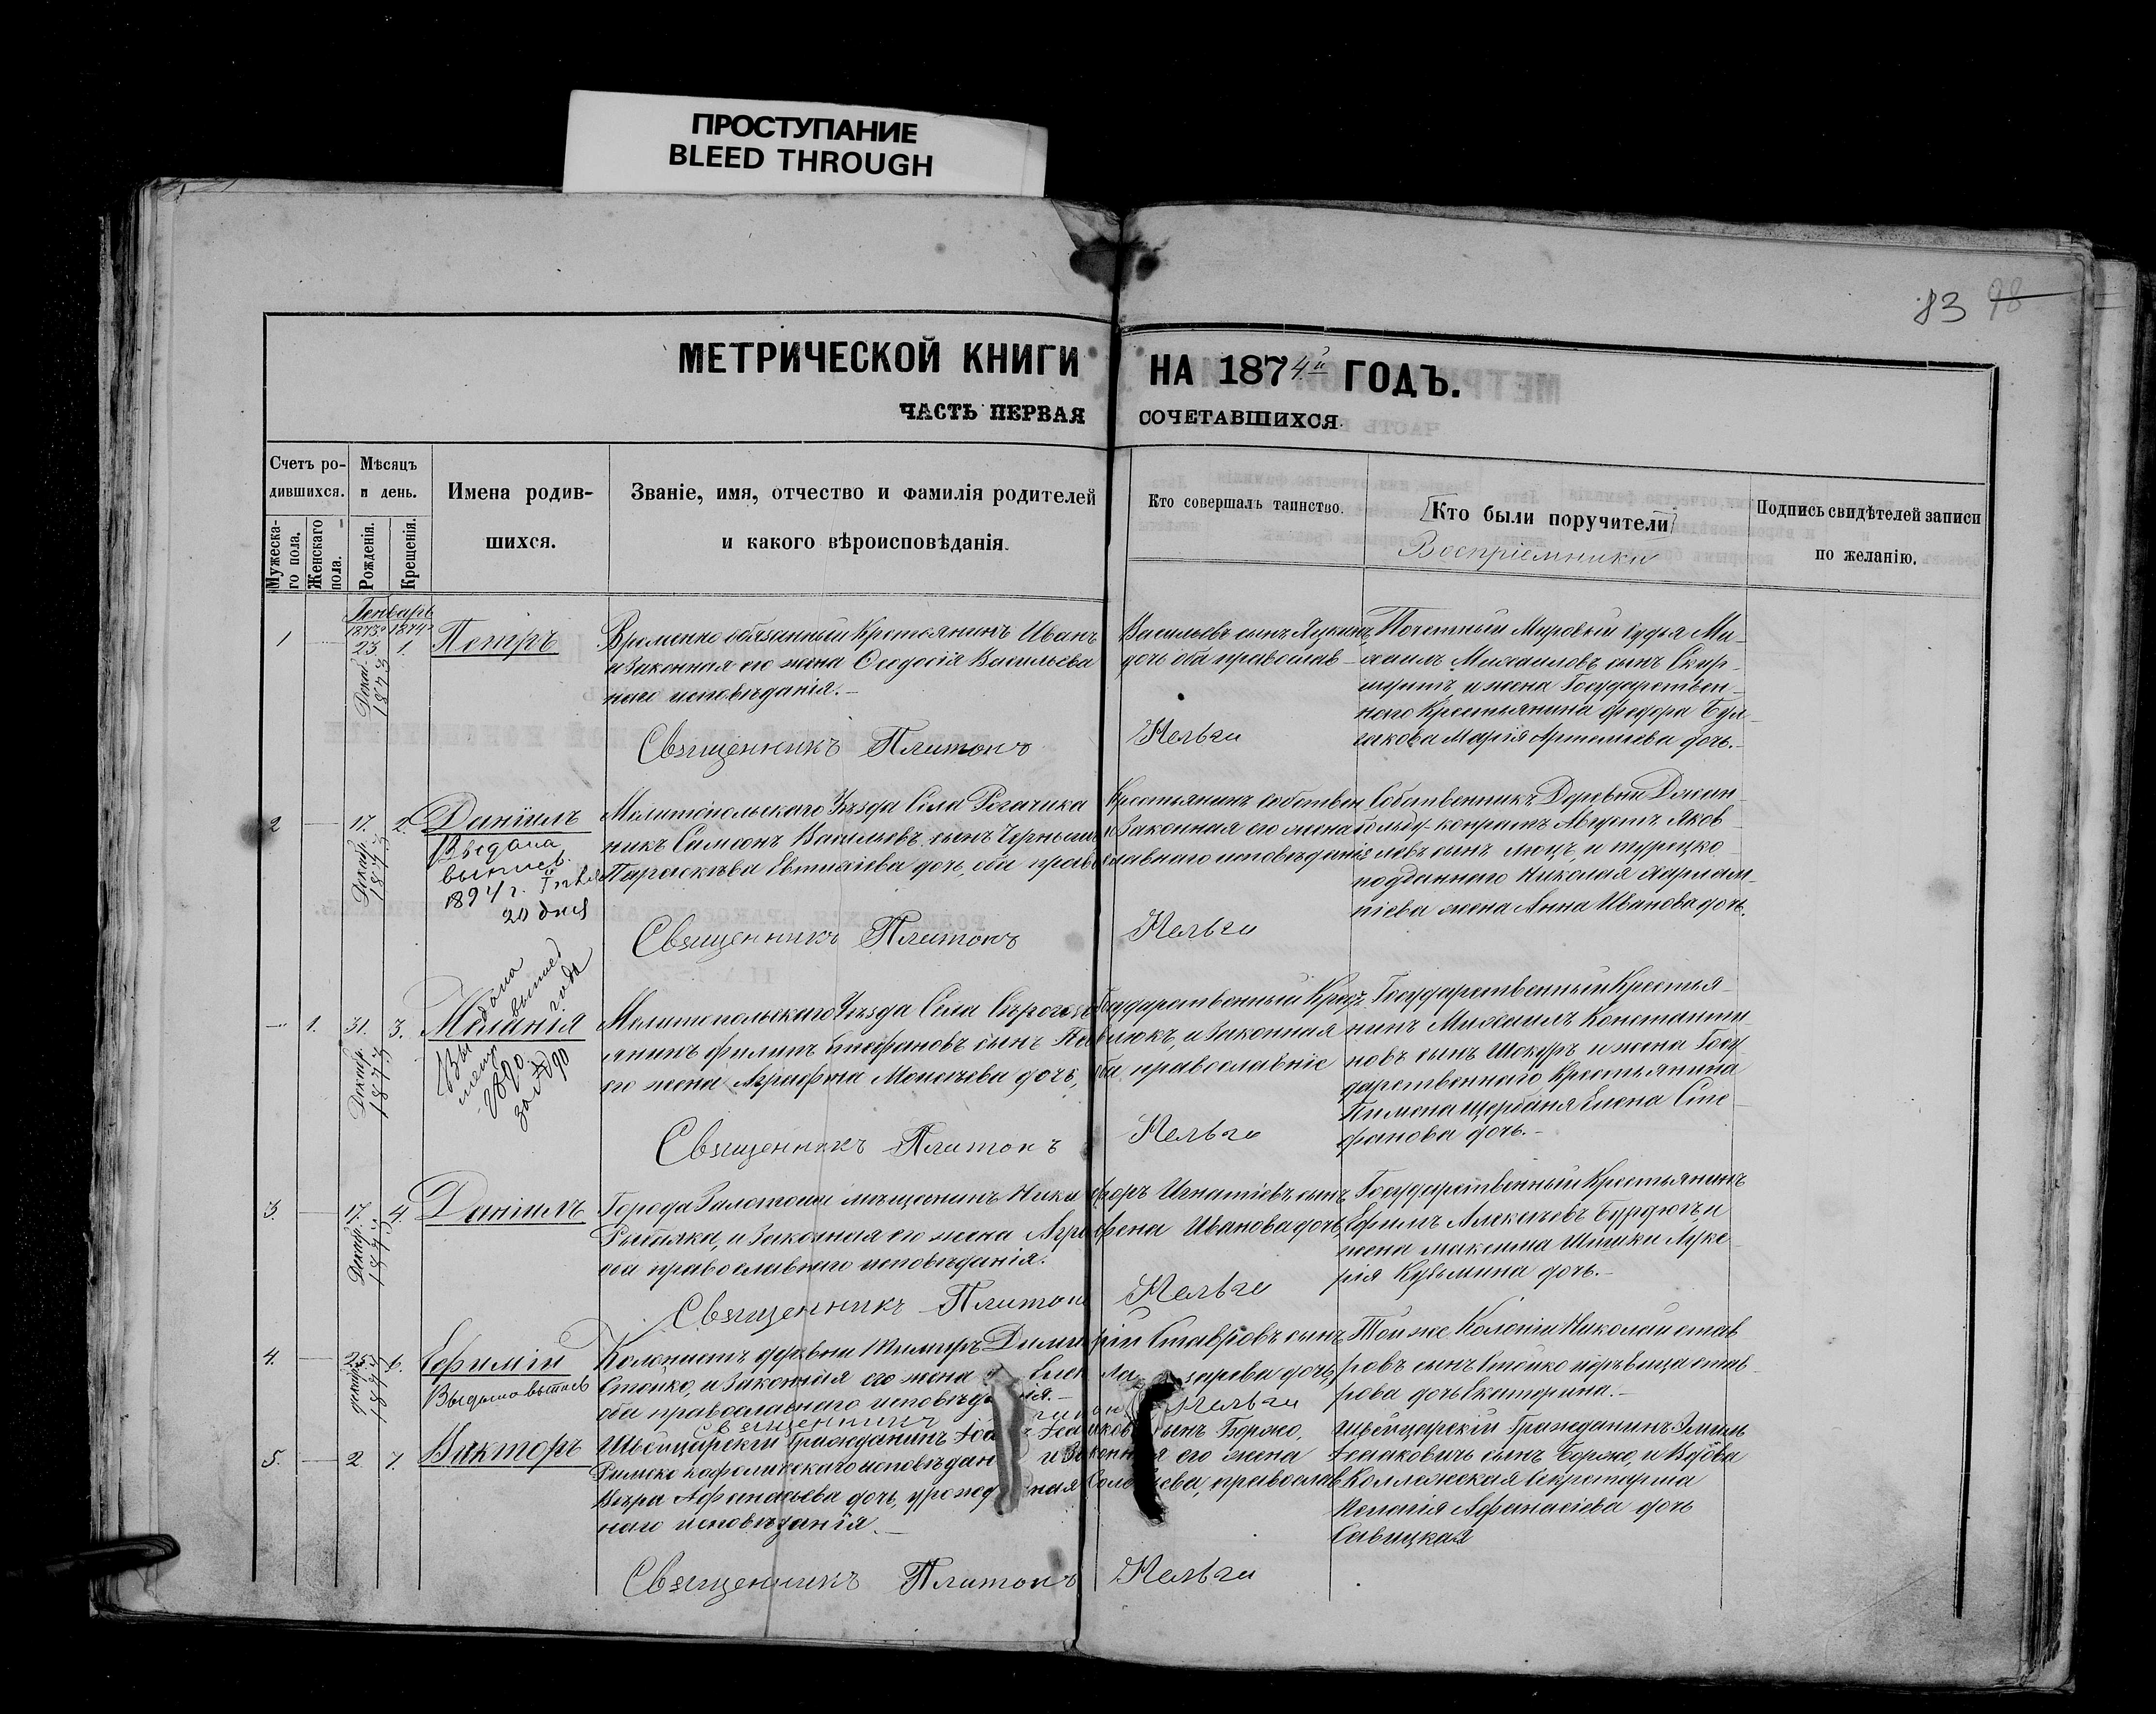 ПРОСТУПАНИЕ
BLEED THROUGH
83 98
МЕТРИЧЕСКОЙ КНИГИ НА 1874й ГОДЪ.
ЧАСТЬ ПЕРВАЯ СОЧЕТАВШИХСЯ
Счетъ ро-
дившихся.
Мужеска-
го пола.
Женскаго
пола.
Мѣсяцъ
и день.
Рожденія.
Крещенія.
Имена родив-
шихся.
Званіе, имя, отчество и фамилія родителей
и какого вѣроисповѣданія.
Кто совершалъ таинство.
Кто были поручители
Воспріемники
Подпись свидѣтелей записи
по желанію.
Генварь
1873г 1874г
1 23 1. Петръ
Декаб. 1873
Временно обязанный Крестьянинъ Иванъ Васильевъ сынъ
и Законная его жена Ѳеодосія Васильева дочь оба православ-
наго исповѣданія.-
Священникъ Платонъ
Почетный Мировой Судья Ми-
хаилъ Михаиловъ сынъ
и жена Государствен-
наго Крестьянина Федора Бул-
гакова Марія Артемиева дочь.-
2 17. 2. Даніилъ
Декабр. 1873
Выдана
выпись.
1894 г.
20 дня
Мелитопольскаго Уѣзда Села Рогачика Крестьянинъ собствен
никъ Симеонъ Васильевъ сынъ и Законная его жена
Параскѣва Евтихіева дочь, оба православнаго исповѣданія
Священникъ Платонъ
Собственникъ Деревни
Августъ Яков-
левъ сынъ Люцъ, и турецко
подданнаго Николая Харлам-
піева жена Анна Иванова дочь.
1. 31. 3. Меланія
Декабр. 1873
Выдана
1890 года
за № 90
Мелитопольскаго Уѣзда Села Государственный Крест
янинъ Филипъ Стефановъ сынъ и Законная
его жена Агрифена дочь, оба православніе
Священникъ Платонъ
Государственный Крестья-
нинъ Михаилъ Константи-
новъ сынъ Шокуръ и жена Госу
дарственнаго Крестьянина
Пимона Щербаня Елена Сте-
фанова дочь.-
3. 17. 4. Даніилъ
Декабр. 1873
Города Золотоши мѣщанинъ Никифоръ Игнатіевъ сынъ
и Законная его жена Агрифена Иванова дочь,
оба православнаго исповѣданія.
Священникъ Платонъ
Государственный Крестьянинъ
Ефимъ Алексіевъ Бурдюгъ, и
жена Максима Шишки Луке
рія Кузьмина дочь.-
4. 25. 6. Ефимій
декабр. 1873
Выдана выпись
Колонистъ деревни Димитрій Ставровъ сынъ
Стойко, и Законная его жена Елена Лазарева дочь,
оба православнаго исповѣданія.-
Священникъ Платонъ
Той же Колоніи Николай Став
ровъ сынъ Стойко и дѣвица Став-
рова дочь Екатерина.-
5. 2 7. Викторъ
Швейцарскій Гражданинъ сынъ Боржо,
Римско кафолическаго исповѣданія и Законная его жена
Вѣра Афанасьева дочь, урожденная православ
наго исповѣданія.-
Священникъ Платонъ
Швейцарскій Гражданинъ Эмиль
сынъ Боржо, и Вдова
Коллежская Секретарша
Афанасіева дочь
Савицкая